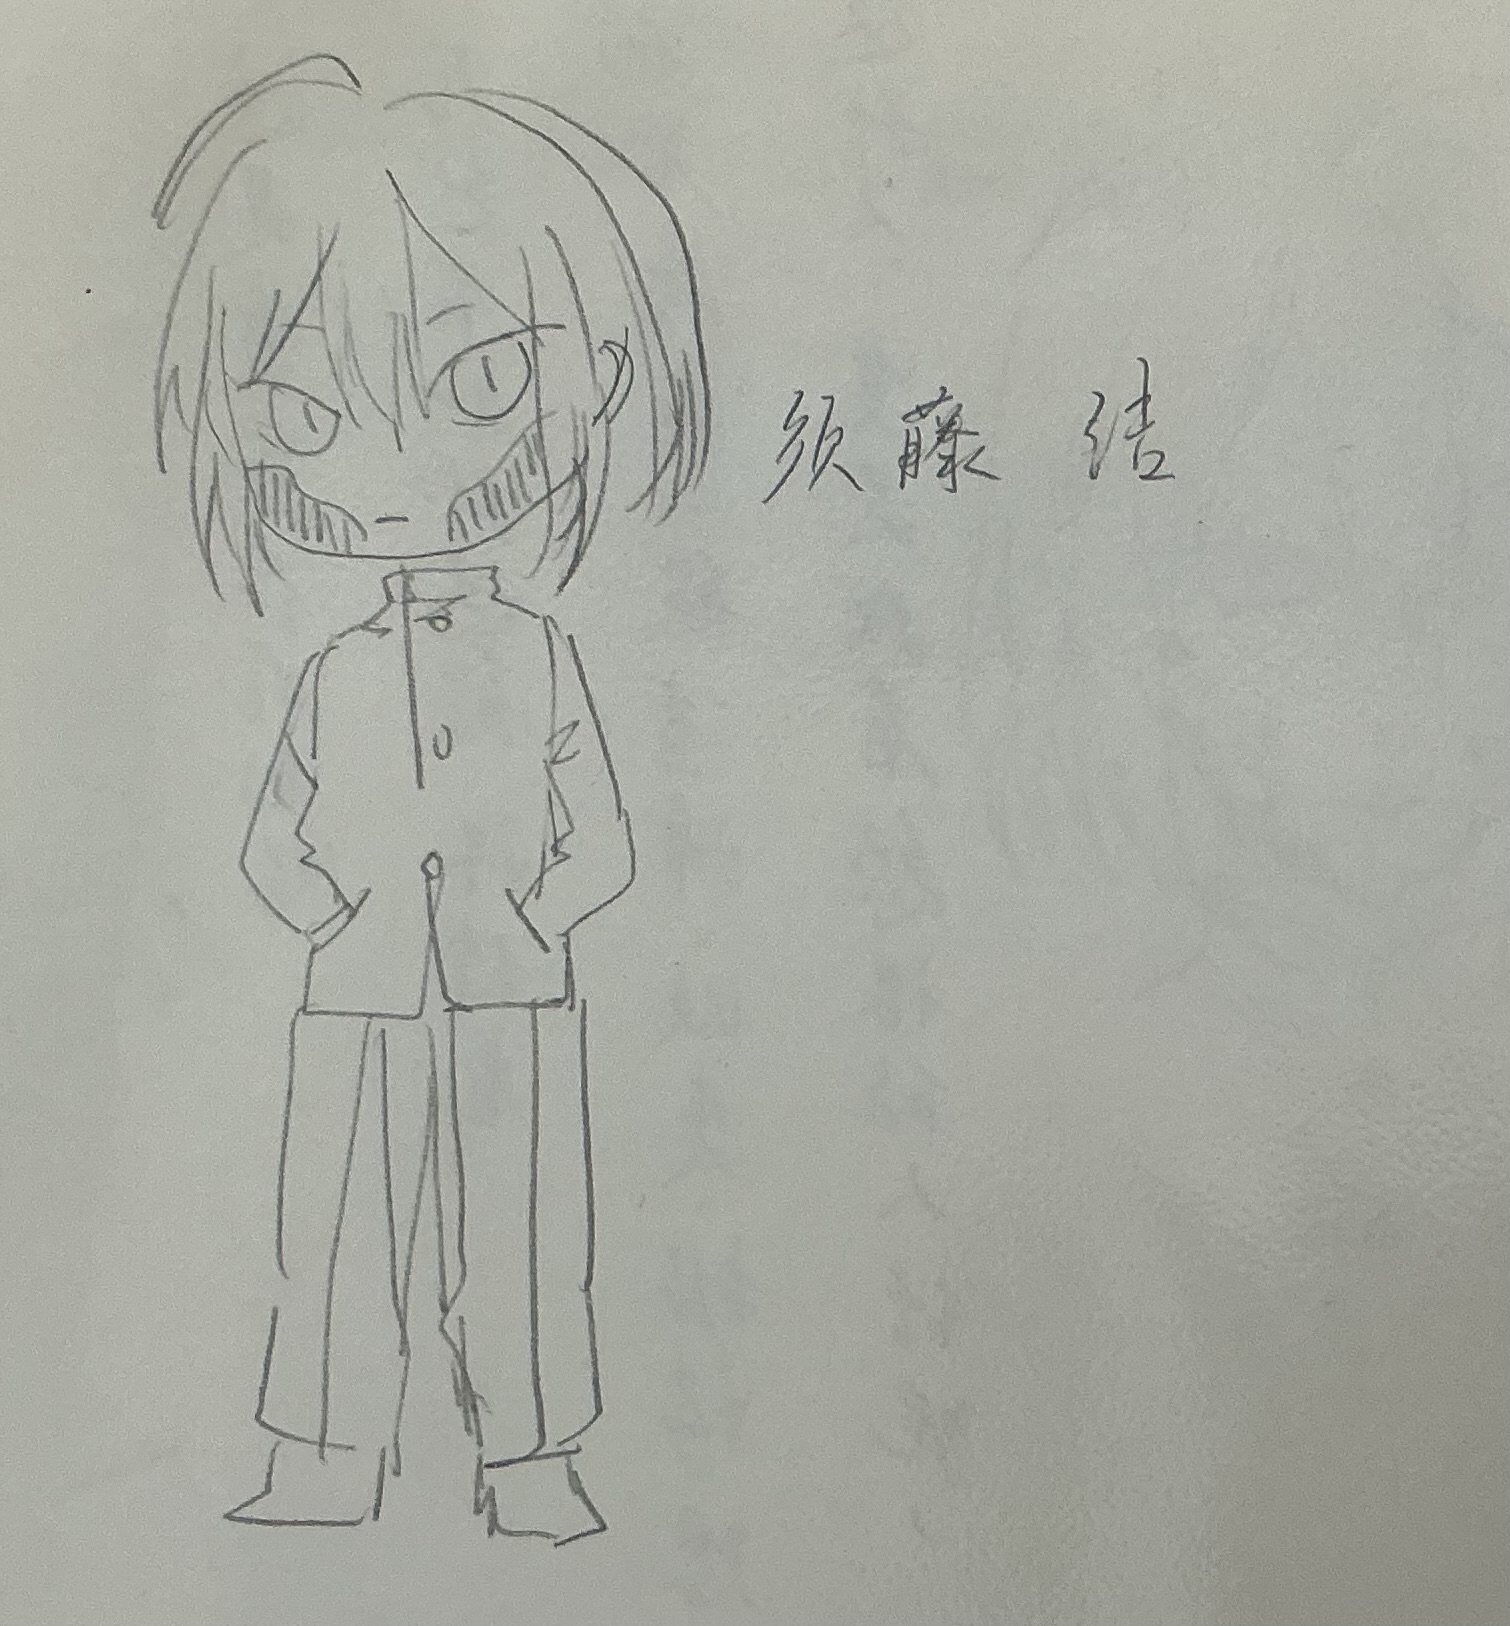 须藤 结